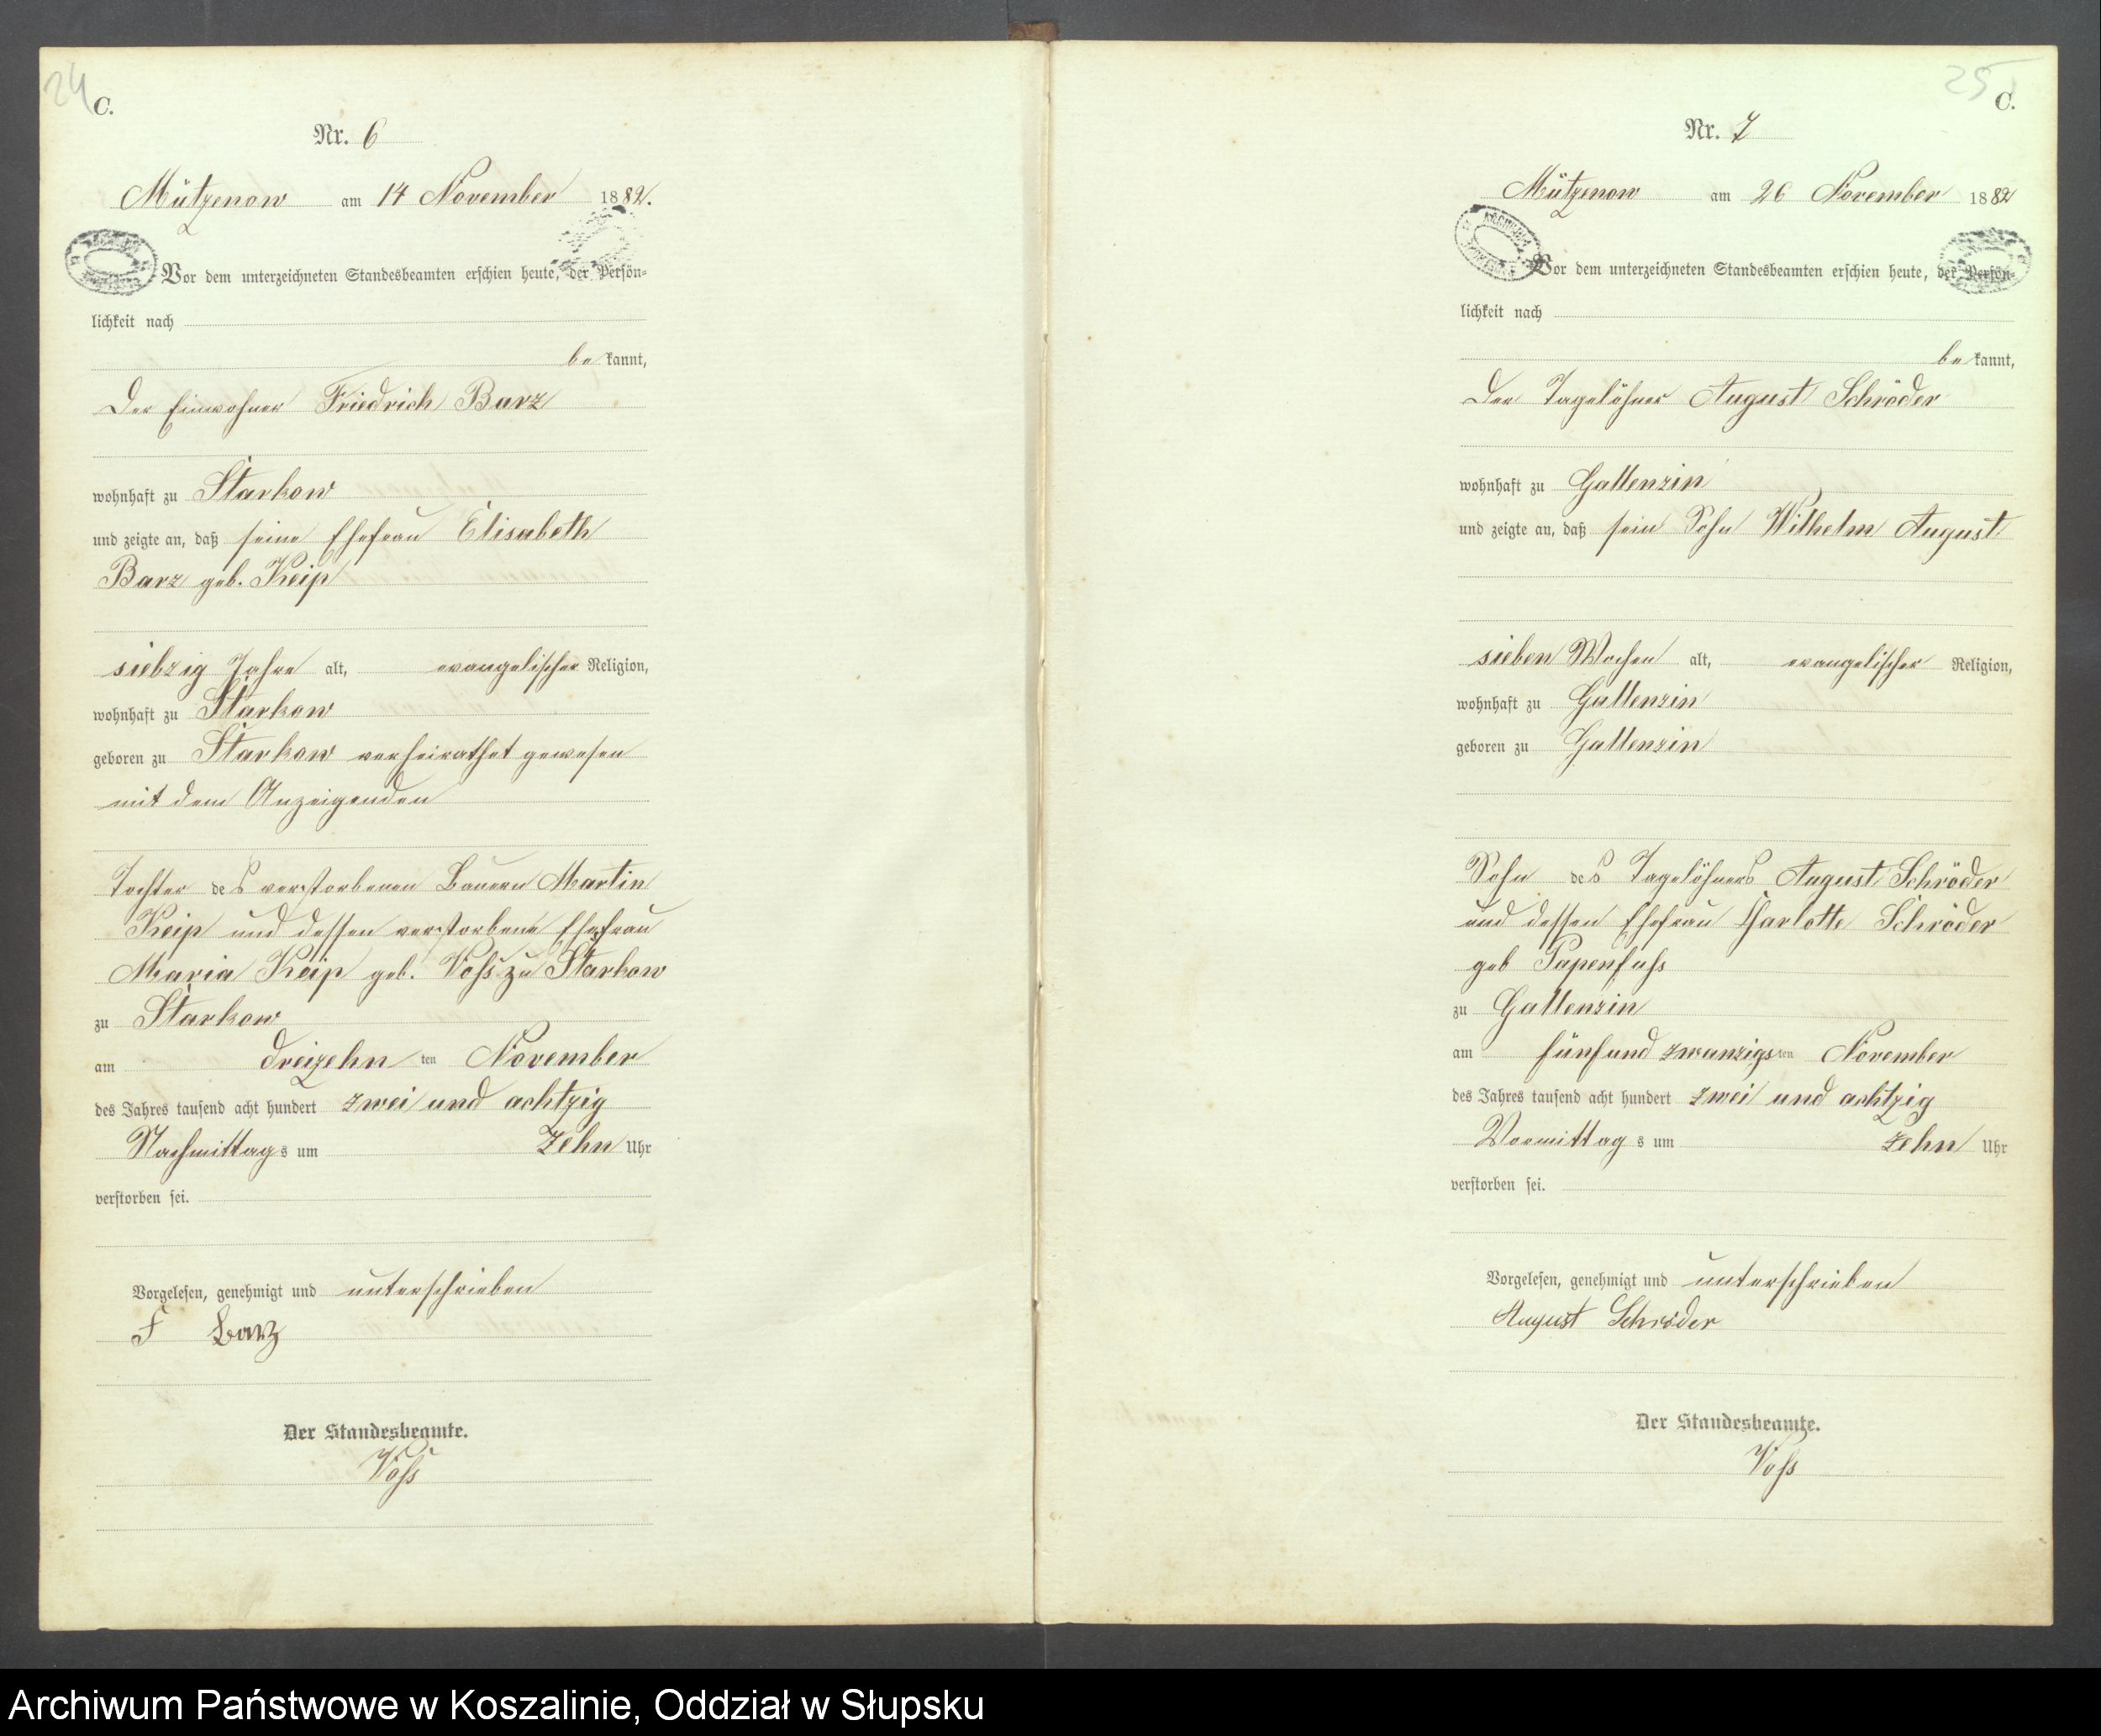 24
C.
Nr. 6
Mützenow am 14 November 1882.
Vor dem unterzeichneten Standesbeamten erschien heute, der Persön-
lichkeit nach
be kannt,
Der Einwohner Friedrich Barz
wohnhaft zu Starkow
und zeigte an, daß seine Ehefrau Elisabeth
Barz geb. Keip
siebzig Jahre alt, evangelischer Religion,
wohnhaft zu Starkow
geboren zu Starkow verheirathet gewesen
mit dem Anzeigenden
Tochter des verstorbenen Bauern Martin
Keip und dessen verstorbene Ehefrau
Maria Keip geb. Voß zu Starkow
zu Starkow
am dreizehn ten November
des Jahres tausend acht hundert zwei und achtzig
Nachmittags um zehn Uhr
verstorben sei.
Vorgelesen, genehmigt und unterschrieben
F Barz
Der Standesbeamte.
Voß
25
C.
Nr. 7
Mützenow am 26 November 1882
Vor dem unterzeichneten Standesbeamten erschien heute, der Persön-
lichkeit nach
be kannt,
Der Tagelöhner August Schröder
wohnhaft zu Gallenzin
und zeigte an, daß sein Sohn Wilhelm August
sieben Wochen alt, evangelischer Religion,
wohnhaft zu Gallenzin
geboren zu Gallenzin
Sohn des Tagelöhners August Schröder
und dessen Ehefrau Charlotte Schröder
geb Papenfuß
zu Gallenzin
am fünfund zwanzigsten November
des Jahres tausend acht hundert zwei und achtzig
Vormittags um zehn Uhr
verstorben sei.
Vorgelesen, genehmigt und unterschrieben
August Schröder
Der Standesbeamte.
Voß
Archiwum Państwowe w Koszalinie, Oddział w Słupsku